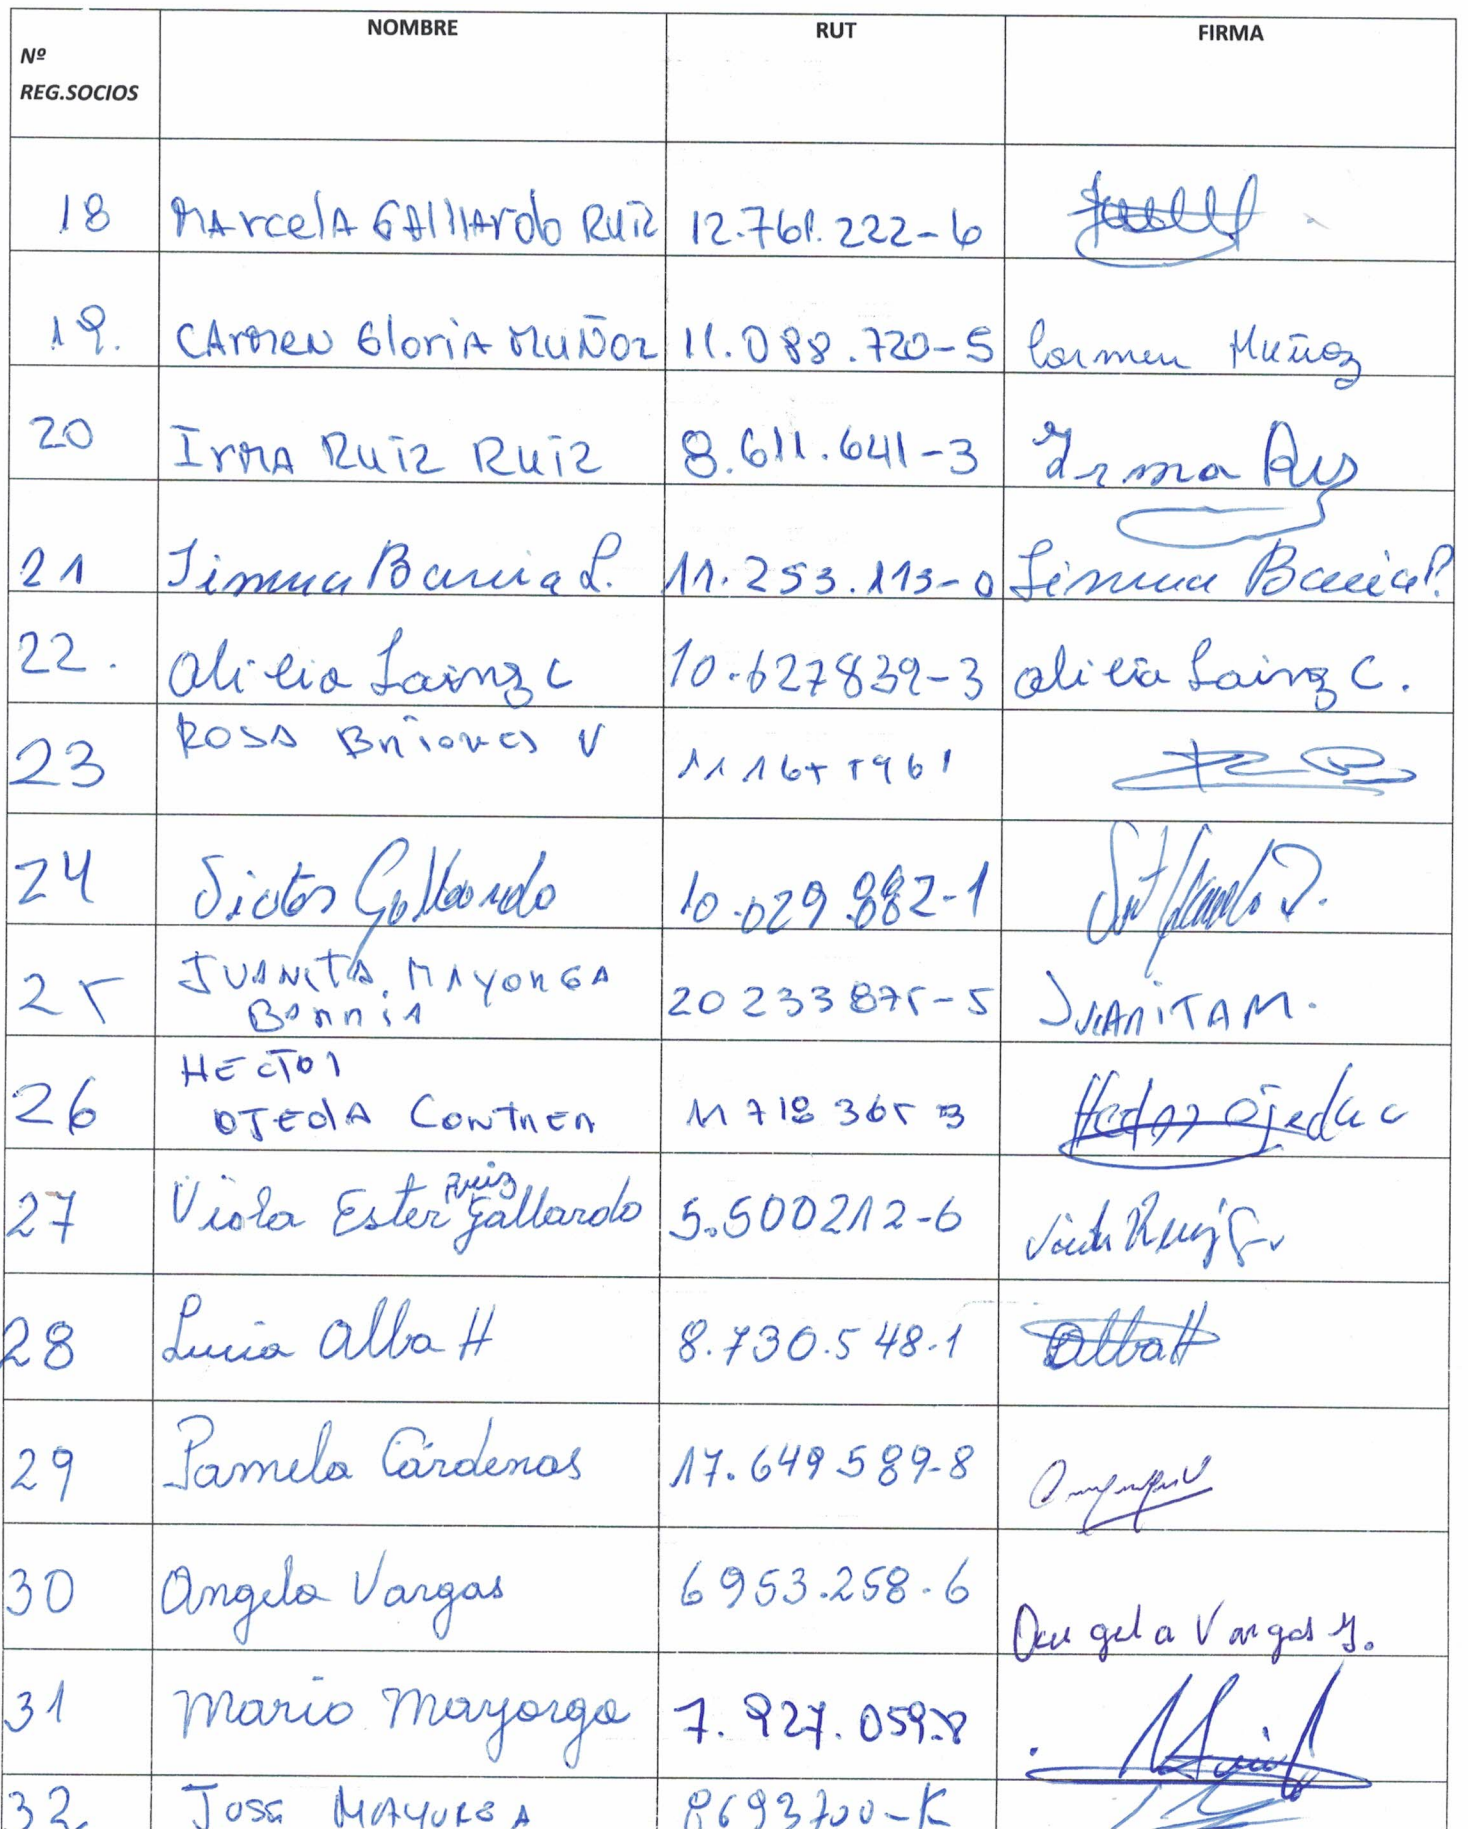 Nº
REG.SOCIOS NOMBRE RUT FIRMA
18 MArcelA GAllArdo RuiZ 12.761.222-6
19. CArmen GloriA MUÑOZ 11.088.720-5 Carmen Muñoz
20 IrmA RUIZ RUIZ 8.611.641-3 Irma
21 Jimena Barria L. 11.253.113-0 Jimena Barria
22. Alicia Sainz C 10.627839-3 Alicia Sainz C.
23 ROSA Briones V
24 Gallardo 10.029.882-1
25 JUANITA MAYORGA
BARRIA 20 233 875-5 JUANITA M.
26 HECTOR
OJEDA CONTRER 11 718 365 3 Ojeda C
27 Viola Ester Ruiz Gallardo 5.500212-6 Ruiz G.
28 Lucia Alba H 8.730.548-1 Alba H
29 Pamela Cárdenas 17.649589-8
30 Angela Vargas 6953.258-6 Angela Vargas
31 Mario Mayorga 7.927.059-8
32. JOSE MAYORGA 8693700-K